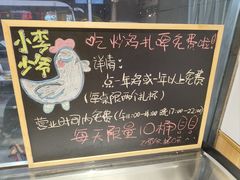 小李
少爷
吃炒鸡扎啤免费啦!
详情:
点一年鸡或一年以上免费
(单桌限两个扎杯)
营业时间内免费(午11:00-14:00 晚17:00-22:00)
每天限量10桶